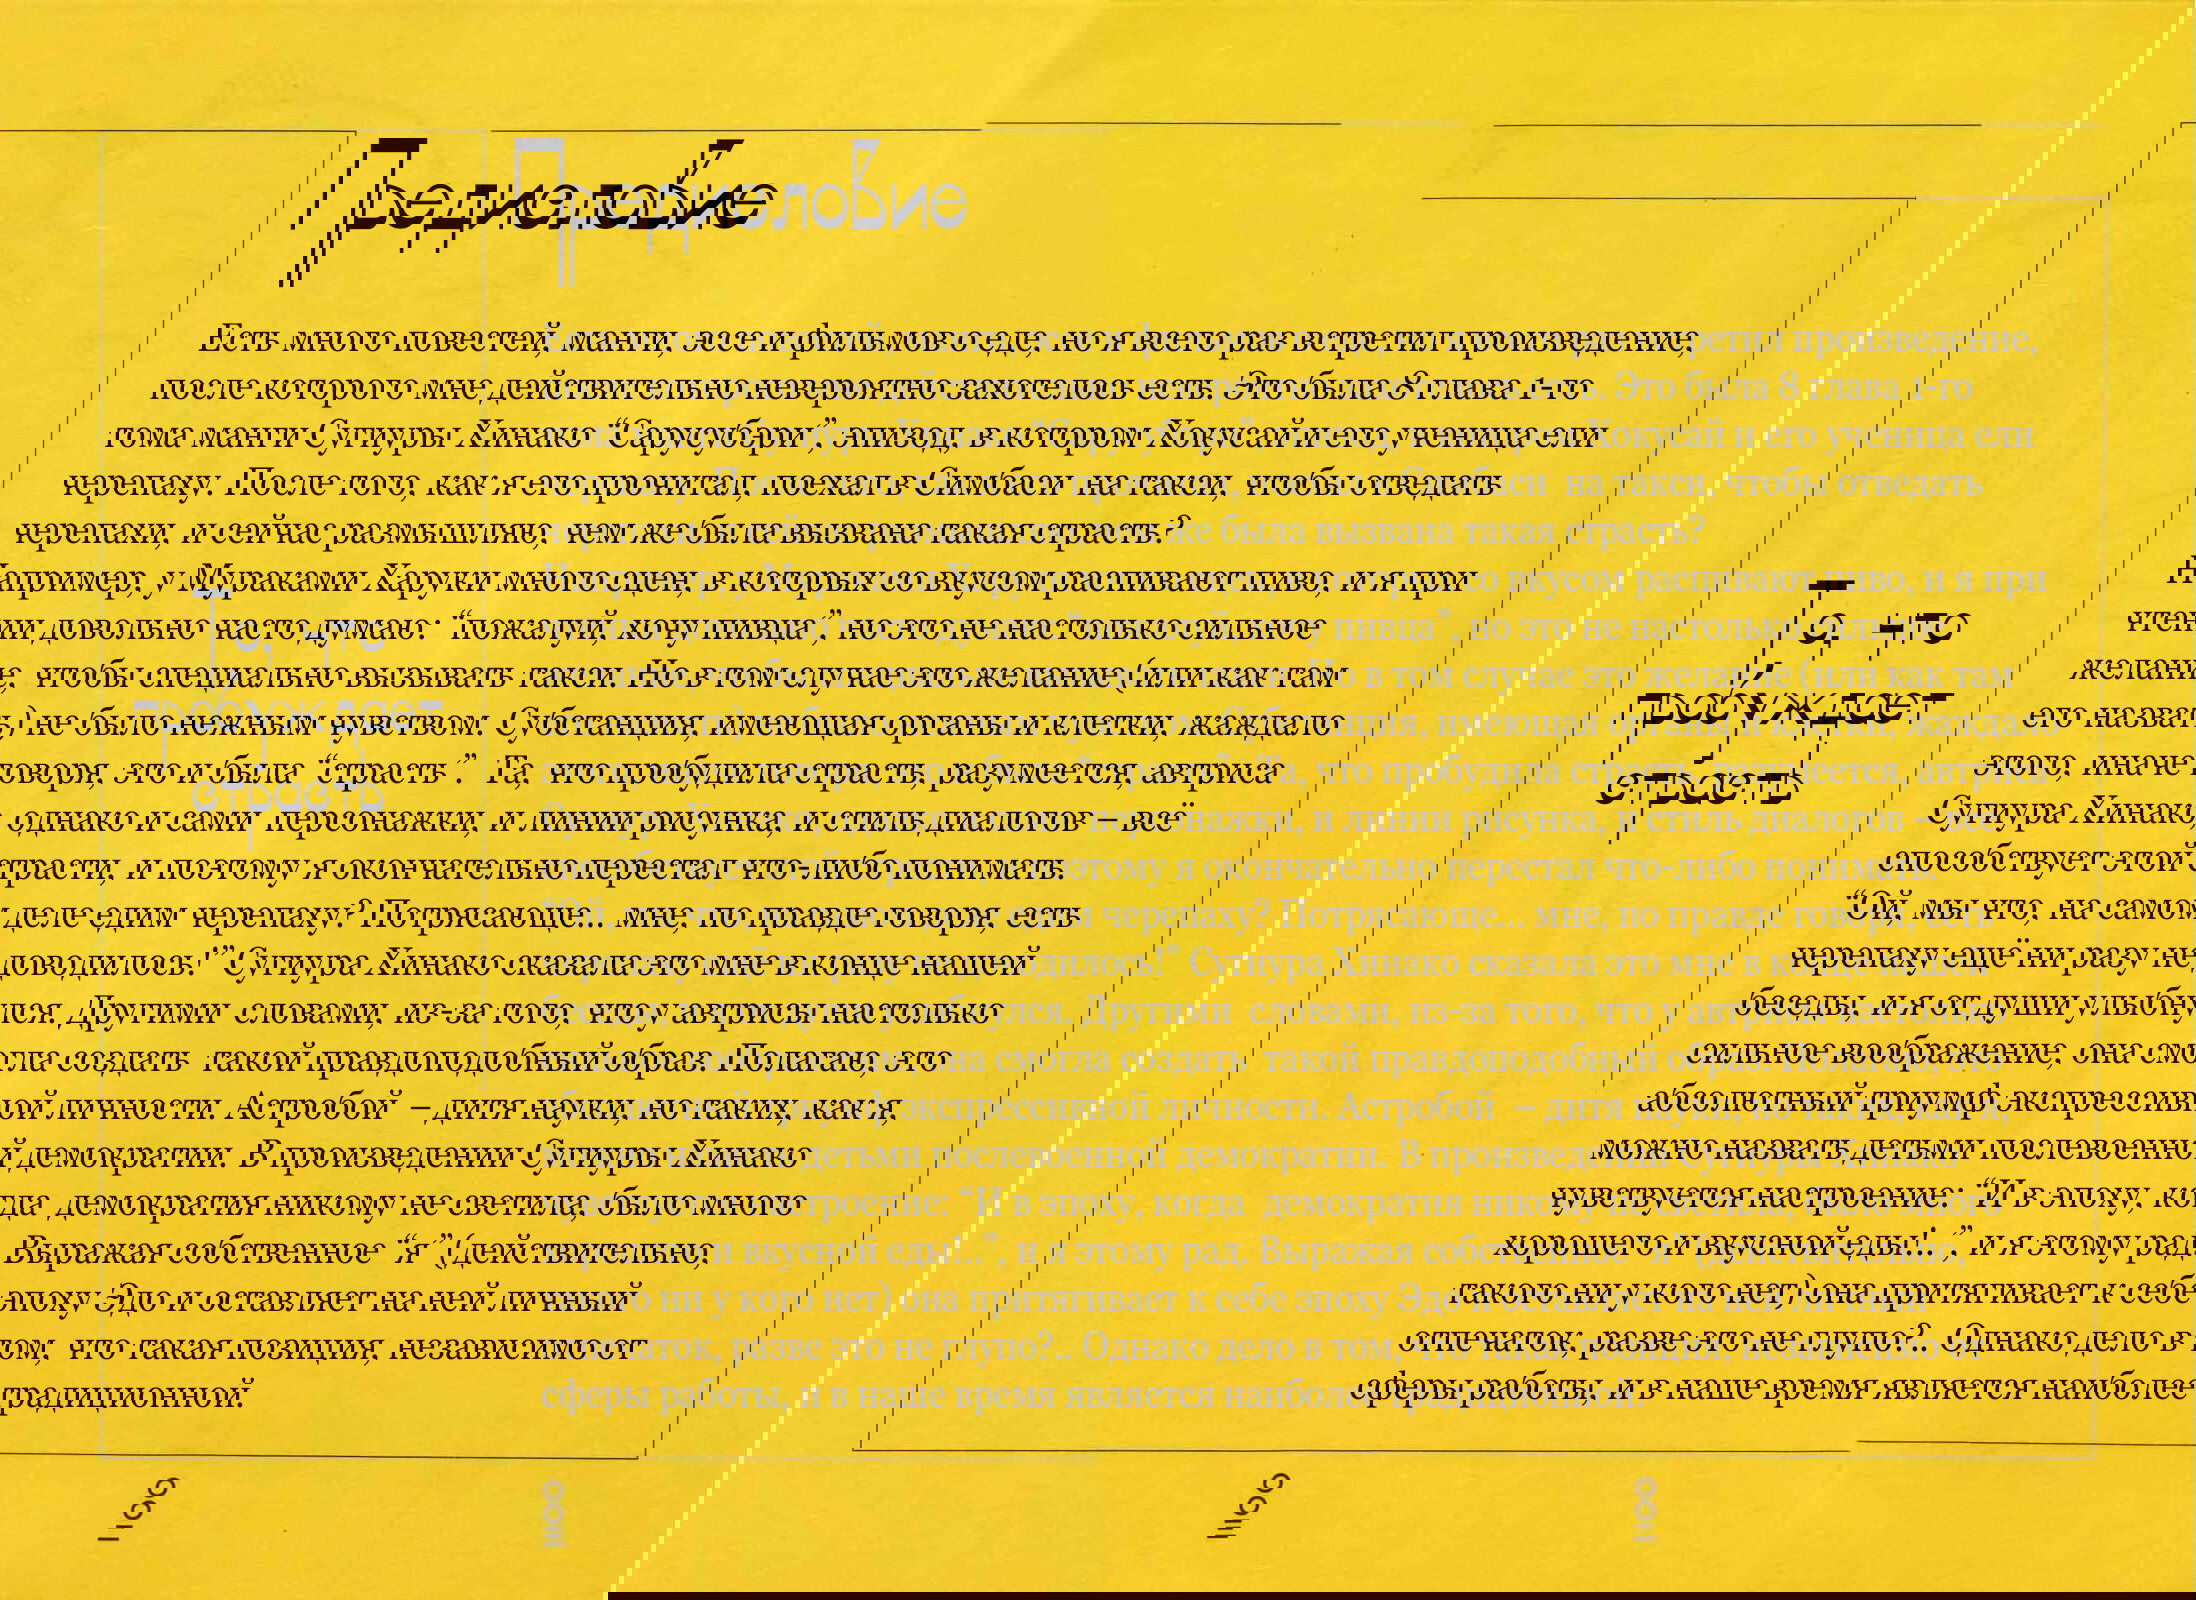 Предисловие
То, что
пробуждает
страсть
Есть много повестей, манги, эссе и фильмов о еде, но я всего раз встретил произведение,
после которого мне действительно невероятно захотелось есть. Это была 8 глава 1-го
тома манги Сугиуры Хинако “Сарусубэри”, эпизод, в котором Хокусай и его ученица ели
черепаху. После того, как я его прочитал, поехал в Симбаси на такси, чтобы отведать
черепахи, и сейчас размышляю, чем же была вызвана такая страсть?
Например, у Мураками Харуки много сцен, в которых со вкусом распивают пиво, и я при
чтении довольно часто думаю: “пожалуй, хочу пивца”, но это не настолько сильное
желание, чтобы специально вызывать такси. Но в том случае это желание (или как там
его назвать) не было нежным чувством. Субстанция, имеющая органы и клетки, жаждало
этого, иначе говоря, это и была “страсть”. Та, что пробудила страсть, разумеется, автриса
Сугиура Хинако, однако и сами персонажки, и линии рисунка, и стиль диалогов – всё
способствует этой страсти, и поэтому я окончательно перестал что-либо понимать.
“Ой, мы что, на самом деле едим черепаху? Потрясающе... мне, по правде говоря, есть
черепаху ещё ни разу не доводилось!” Сугиура Хинако сказала это мне в конце нашей
беседы, и я от души улыбнулся. Другими словами, из-за того, что у автрисы настолько
сильное воображение, она смогла создать такой правдоподобный образ. Полагаю, это
абсолютный триумф экспрессивной личности. Астробой – дитя науки, но таких, как я,
можно назвать детьми послевоенной демократии. В произведении Сугиуры Хинако
чувствуется настроение: “И в эпоху, когда демократия никому не светила, было много
хорошего и вкусной еды!..”, и я этому рад. Выражая собственное “я” (действительно,
такого ни у кого нет) она притягивает к себе эпоху Эдо и оставляет на ней личный
отпечаток, разве это не глупо?.. Однако дело в том, что такая позиция, независимо от
сферы работы, и в наше время является наиболее традиционной.